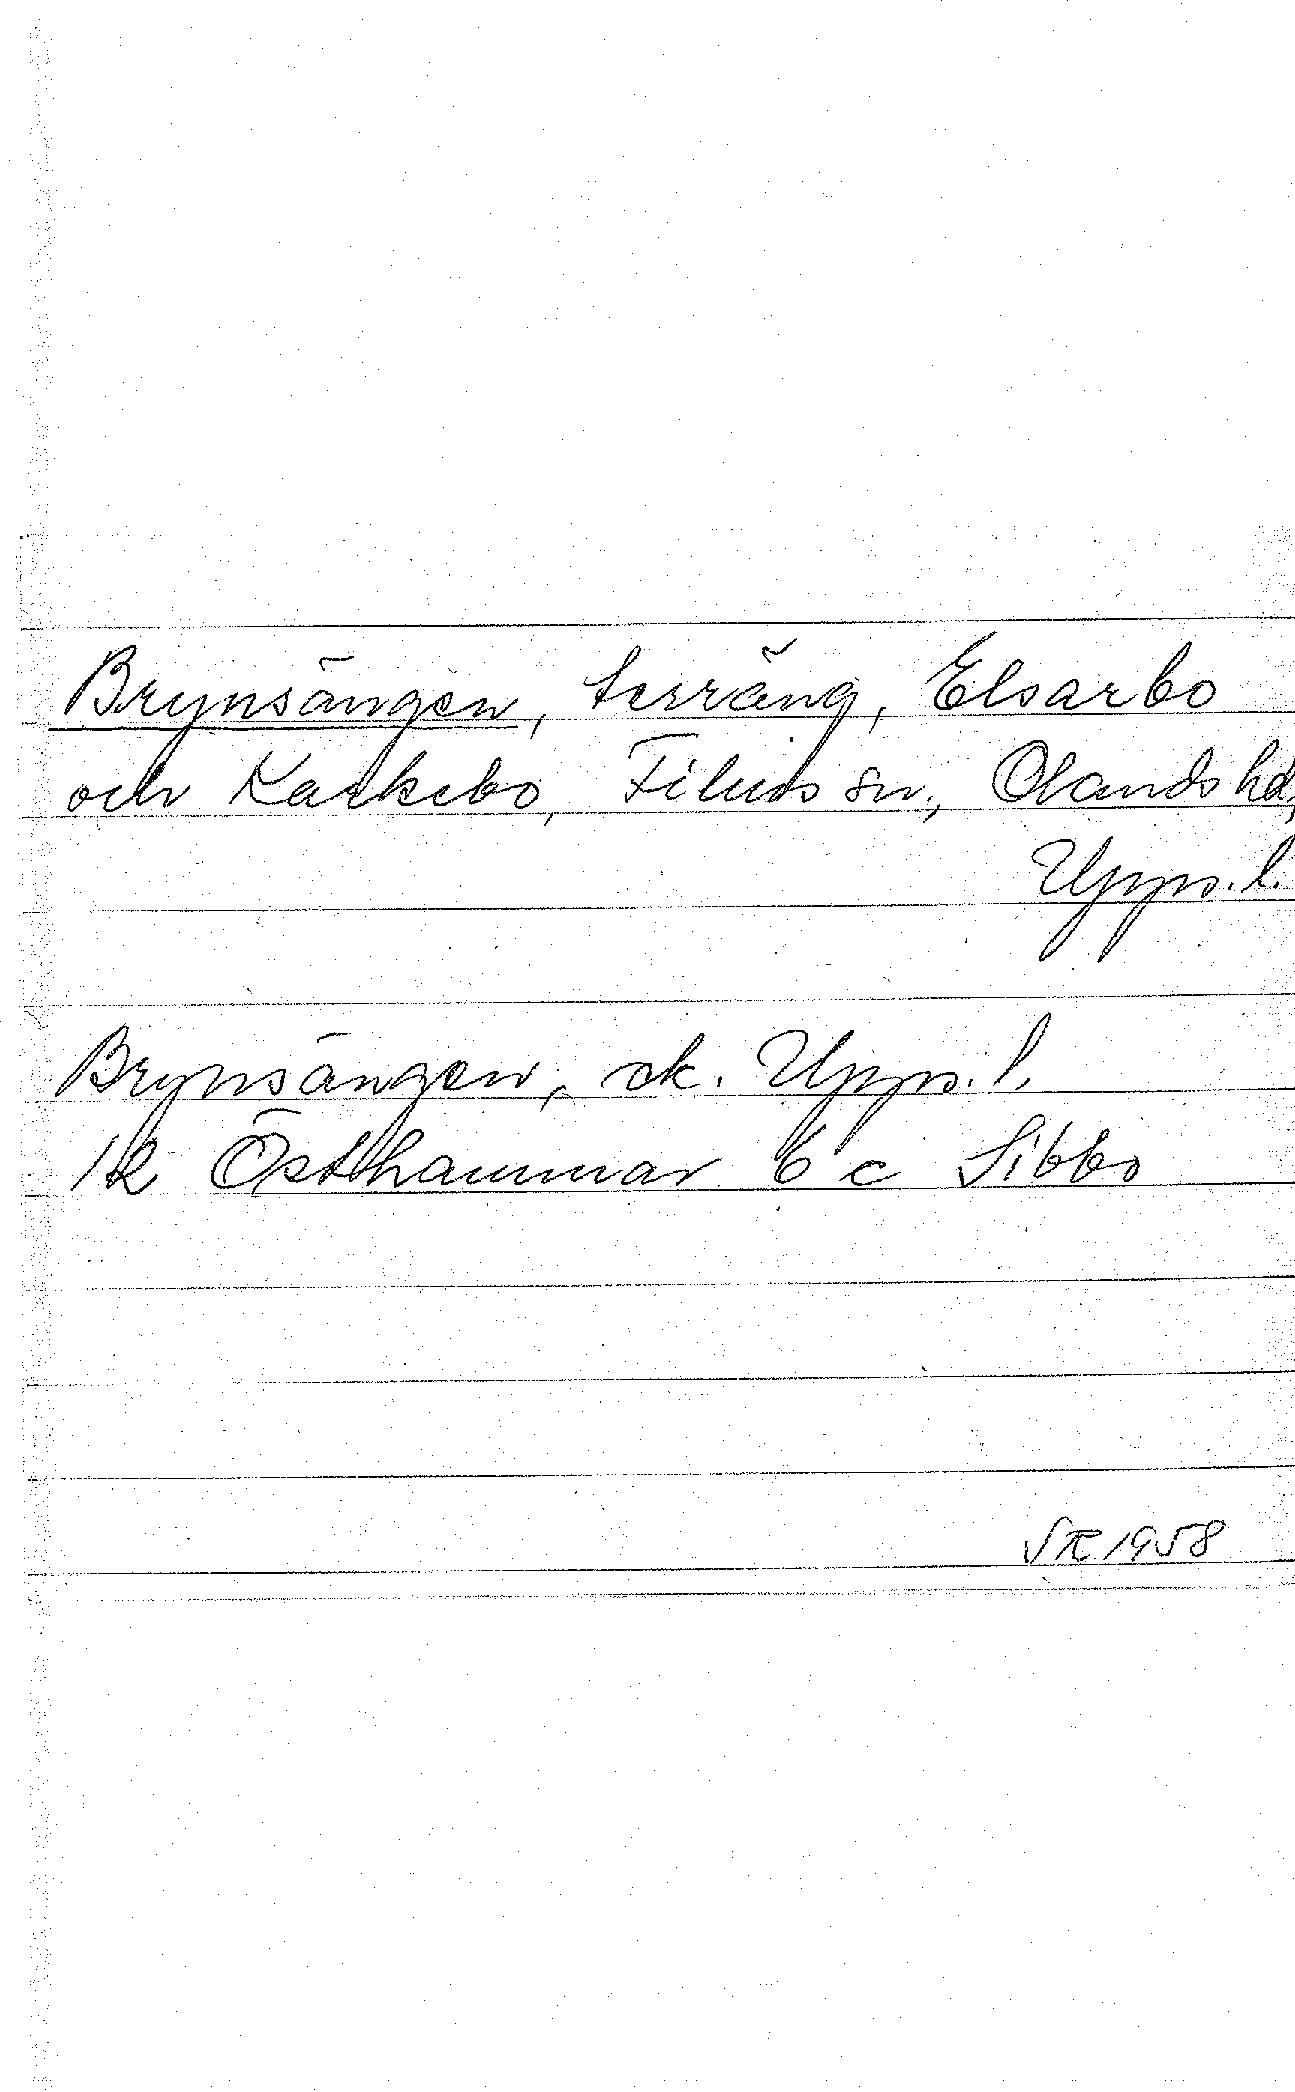 Brynsängen, terräng, Elsarbo
och Karkebo, Films sn, Olands hd,
Upps.l.
Brynsängen, ek. Upps. l.
12 Östhammar 6 c Sibbo
1958